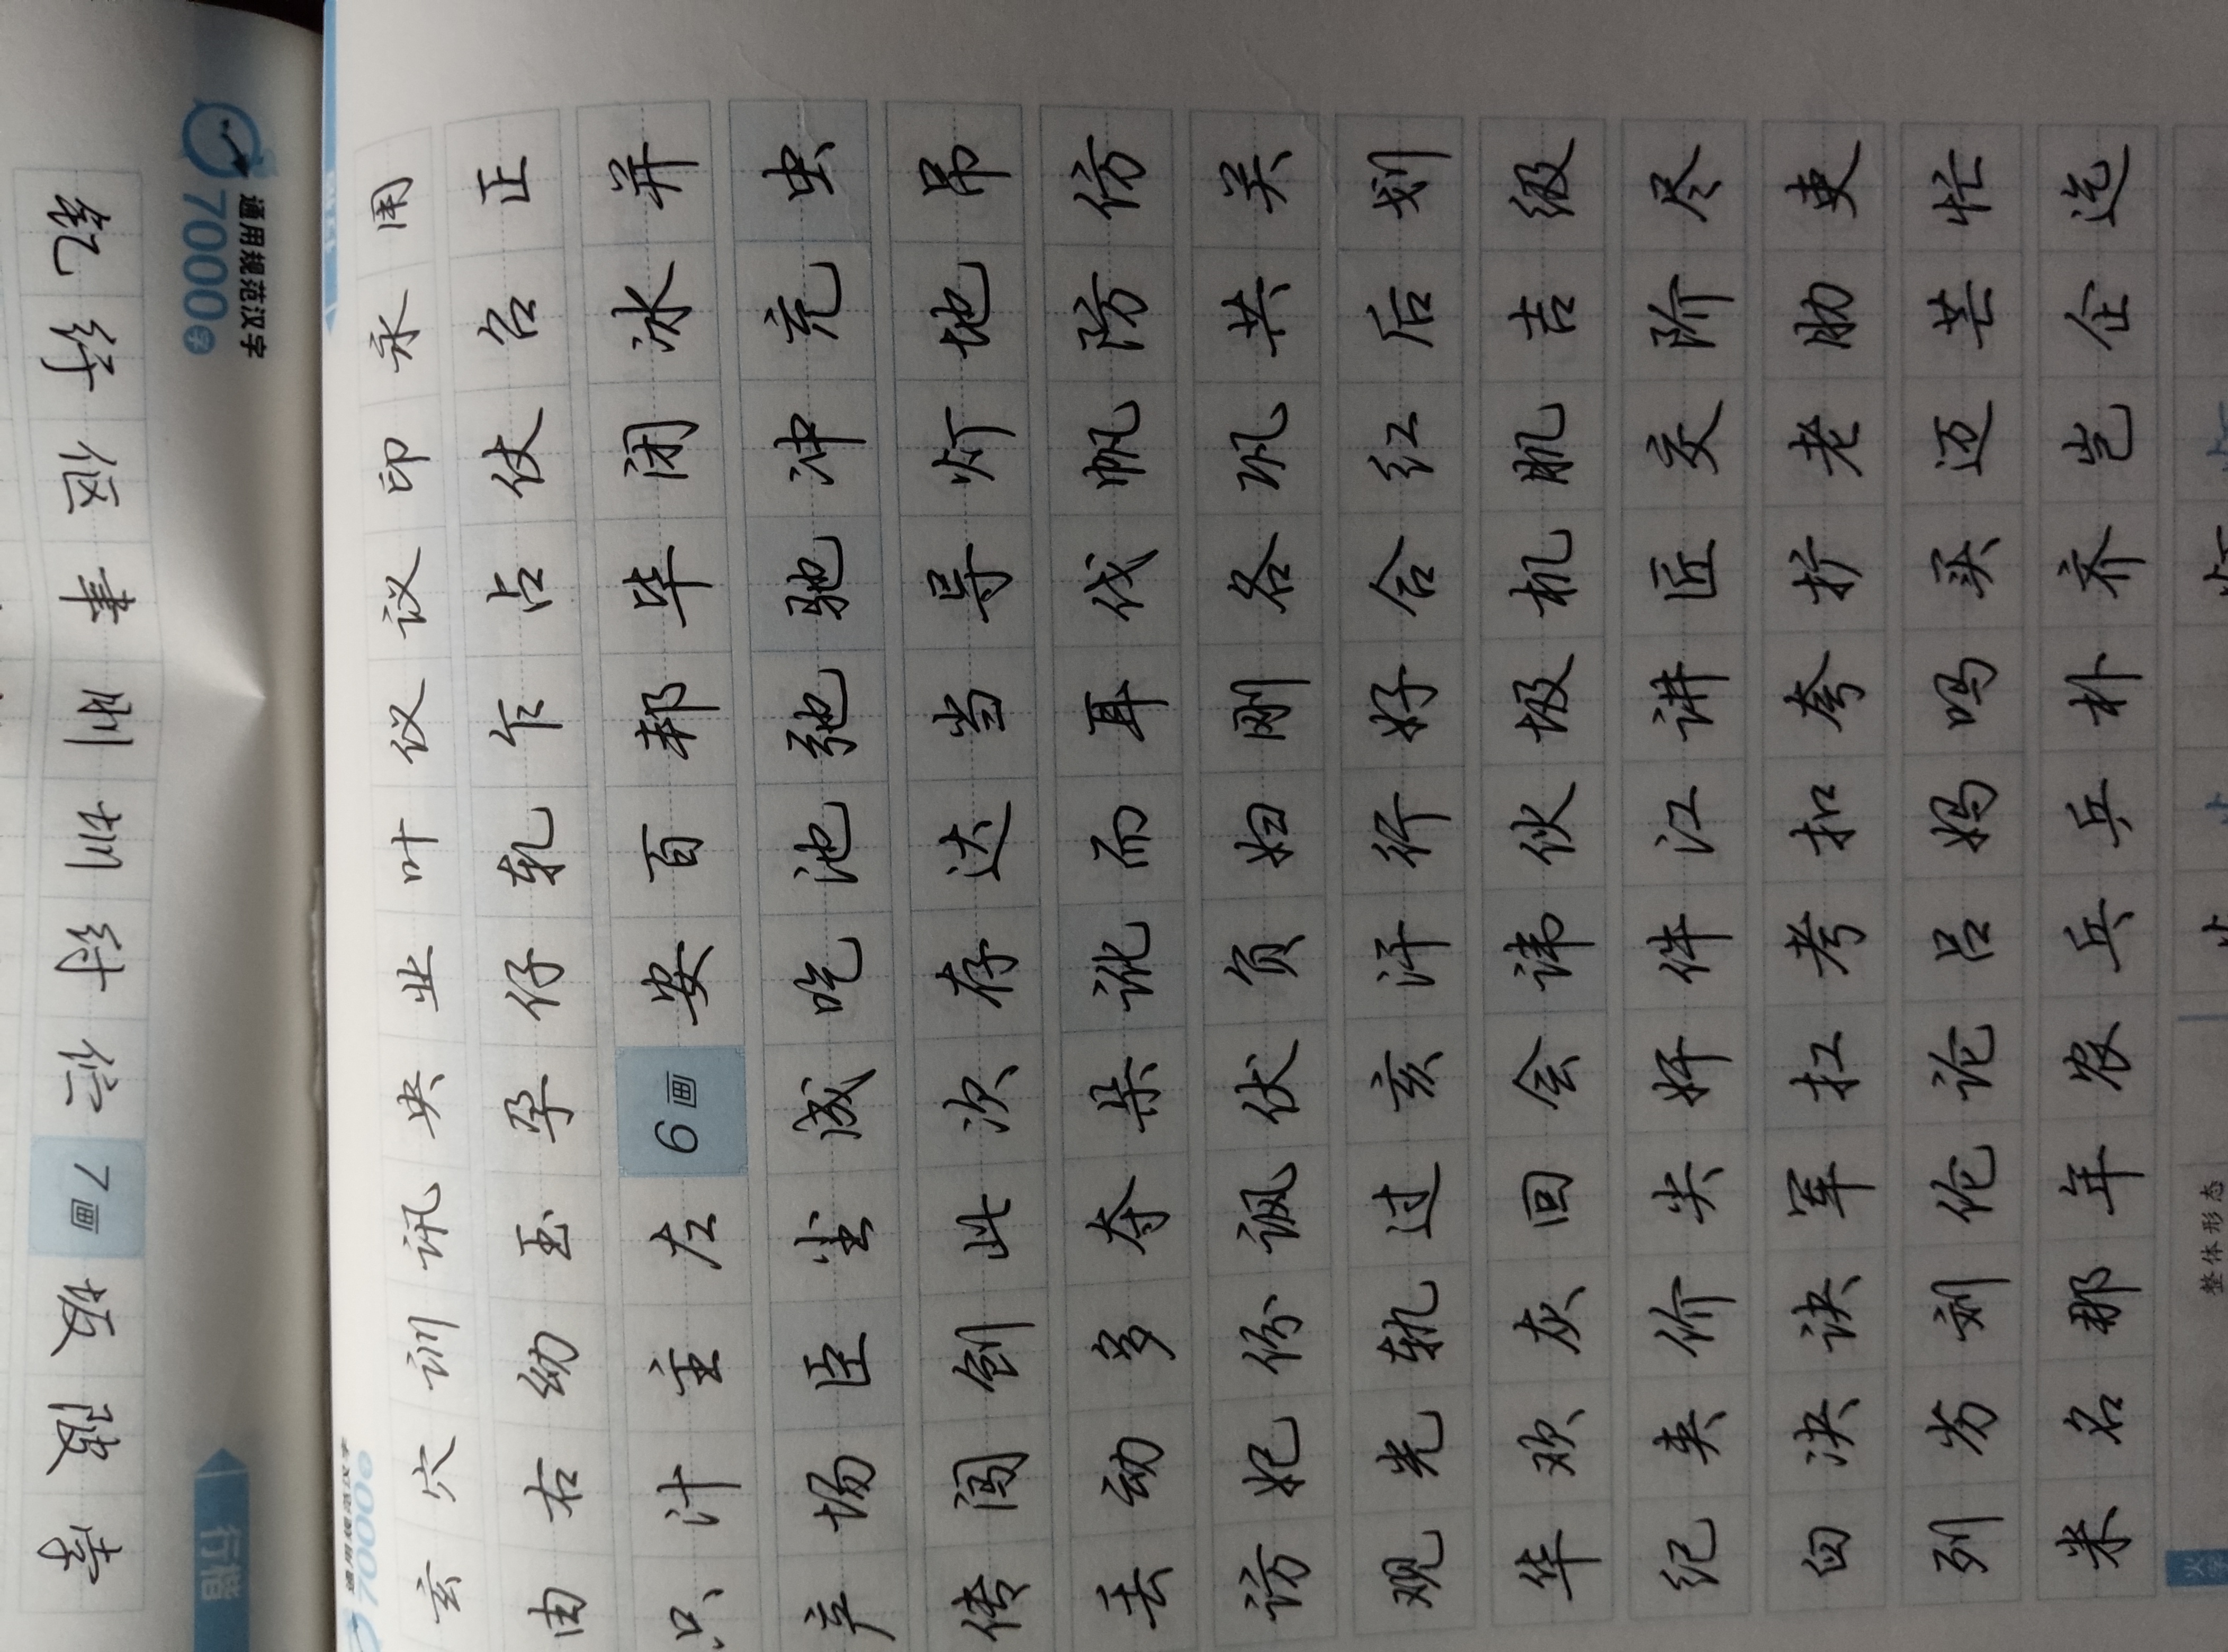 寺 改 坂 7画 伫 纣 圳 刚 聿 伛 纡 乾
行楷
通用规范汉字
7000字
通用规范汉字
7000字
行楷
玄 穴 训 讯 央 业 叶 仪 议 印 永 用
由 右 幼 玉 孕 仔 轧 乍 占 仗 召 正
只 汁 主 左 6画 安 百 邦 毕 闭 冰 并
产 场 臣 尘 成 吃 池 弛 驰 冲 充 虫
传 闯 创 此 次 存 达 当 导 灯 地 吊
丢 动 多 夺 朵 讹 而 耳 伐 帆 防 仿
访 妃 份 讽 伏 负 妇 刚 各 巩 共 关
观 光 轨 过 亥 汗 行 好 合 红 后 划
华 欢 灰 回 会 讳 伙 圾 机 肌 吉 级
纪 夹 价 尖 奸 件 江 讲 匠 交 阶 尽
臼 决 诀 军 扛 考 扣 夸 扩 老 肋 吏
列 劣 刘 伦 论 吕 妈 吗 买 迈 芒 忙
米 名 那 年 农 乓 乒 朴 齐 岂 企 迄
火字
整体形态
灯